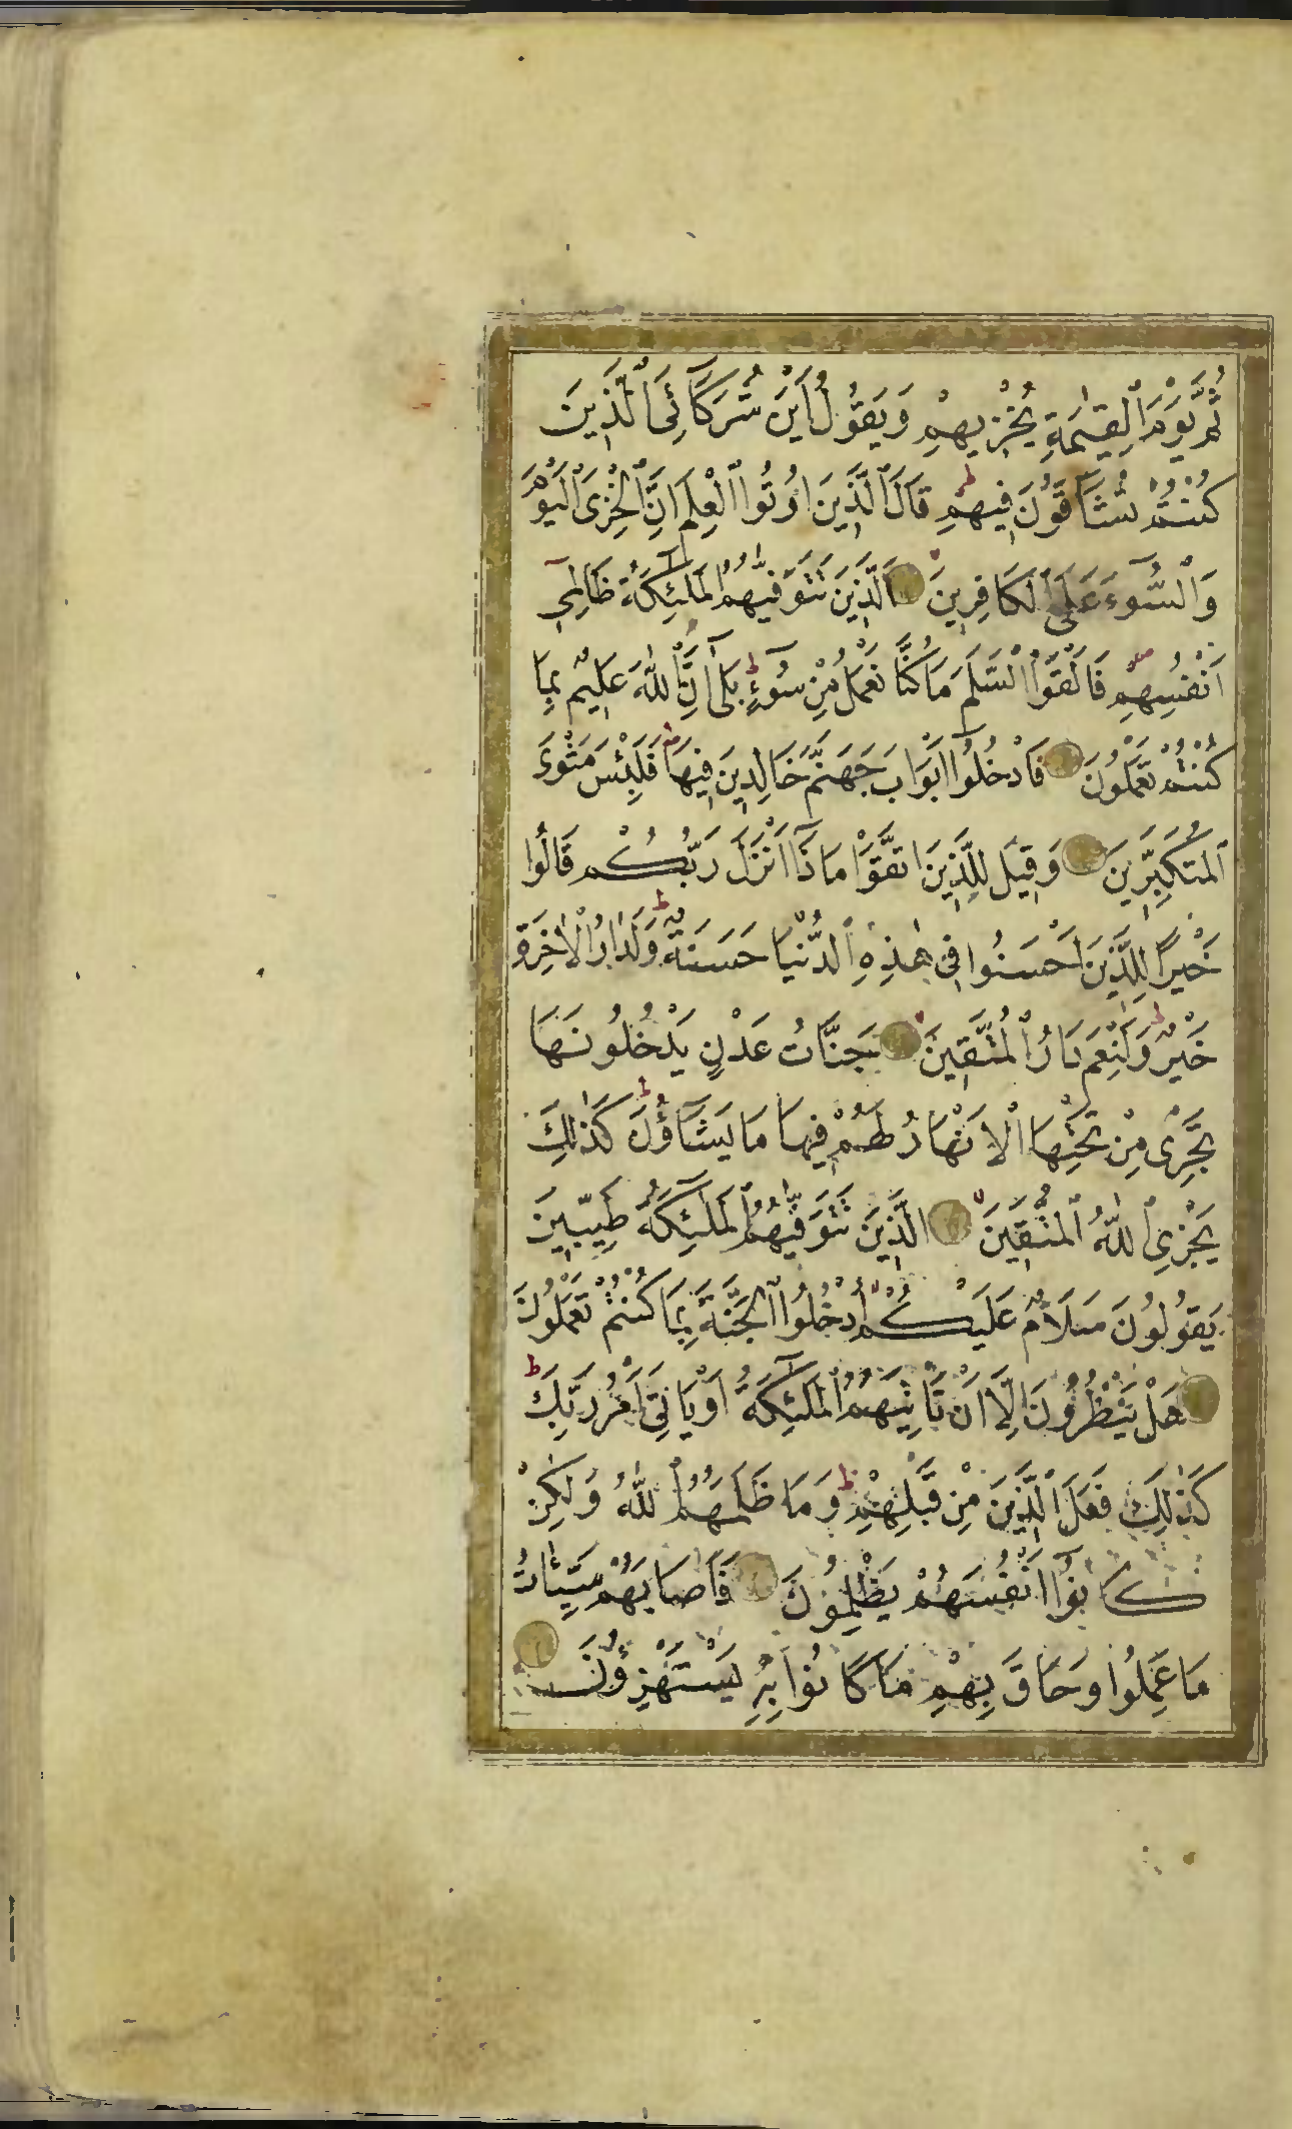 ثُمَّ يَوْمَ ٱلْقِيٰمَةِ يُخْزِيهِمْ وَيَقُولُ اَيْنَ شُرَكَآئِىَ ٱلَّذِينَ
كُنْتُمْ تُشَآقُّونَ فِيهِمْ ط قَالَ ٱلَّذِينَ اُوتُوا ٱلْعِلْمَ اِنَّ ٱلْخِزْىَ ٱلْيَوْمَ
وَٱلْسُّوٓءَ عَلَى ٱلْكَافِرِينَ ۝ اَلَّذِينَ تَتَوَفّٰيهُمُ ٱلْمَلٰٓئِكَةُ ظَالِمِىٓ
اَنْفُسِهِمْ فَاَلْقَوُا ٱلسَّلَمَ مَا كُنَّا نَعْمَلُ مِنْ سُوٓءٍ ط بَلٰٓى اِنَّ ٱللّٰهَ عَلِيمٌ بِمَا
كُنْتُمْ تَعْمَلُونَ ۝ فَادْخُلُوٓا اَبْوَابَ جَهَنَّمَ خَالِدِينَ فِيهَا ط فَلَبِئْسَ مَثْوَى
ٱلْمُتَكَبِّرِينَ ۝ وَقِيلَ لِلَّذِينَ اتَّقَوْا مَاذَآ اَنْزَلَ رَبُّكُمْ قَالُوا
خَيْرًا لِلَّذِينَ اَحْسَنُوا فِى هٰذِهِ ٱلدُّنْيَا حَسَنَةٌ ط وَلَدَارُ ٱلْاٰخِرَةِ
خَيْرٌ ط وَلَنِعْمَ دَارُ ٱلْمُتَّقِينَ ۝ جَنَّاتُ عَدْنٍ يَدْخُلُونَهَا
تَجْرِى مِنْ تَحْتِهَا ٱلْاَنْهَارُ لَهُمْ فِيهَا مَا يَشَآؤُنَ ط كَذٰلِكَ
يَجْزِى ٱللّٰهُ ٱلْمُتَّقِينَ ۝ الَّذِينَ تَتَوَفّٰيهُمُ ٱلْمَلٰٓئِكَةُ طَيِّبِينَ
يَقُولُونَ سَلَامٌ عَلَيْكُمْ اُدْخُلُوا ٱلْجَنَّةَ بِمَا كُنْتُمْ تَعْمَلُونَ
۝ هَلْ يَنْظُرُونَ اِلَّآ اَنْ تَاْتِيَهُمُ ٱلْمَلٰٓئِكَةُ اَوْ يَاْتِىَ اَمْرُ رَبِّكَ ط
كَذٰلِكَ فَعَلَ ٱلَّذِينَ مِنْ قَبْلِهِمْ ط وَمَا ظَلَمَهُمُ ٱللّٰهُ وَلٰكِنْ
كَانُوٓا اَنْفُسَهُمْ يَظْلِمُونَ ۝ فَاَصَابَهُمْ سَيِّئَاتُ
مَا عَمِلُوا وَحَاقَ بِهِمْ مَا كَانُوا بِهِ يَسْتَهْزِؤُنَ ۝